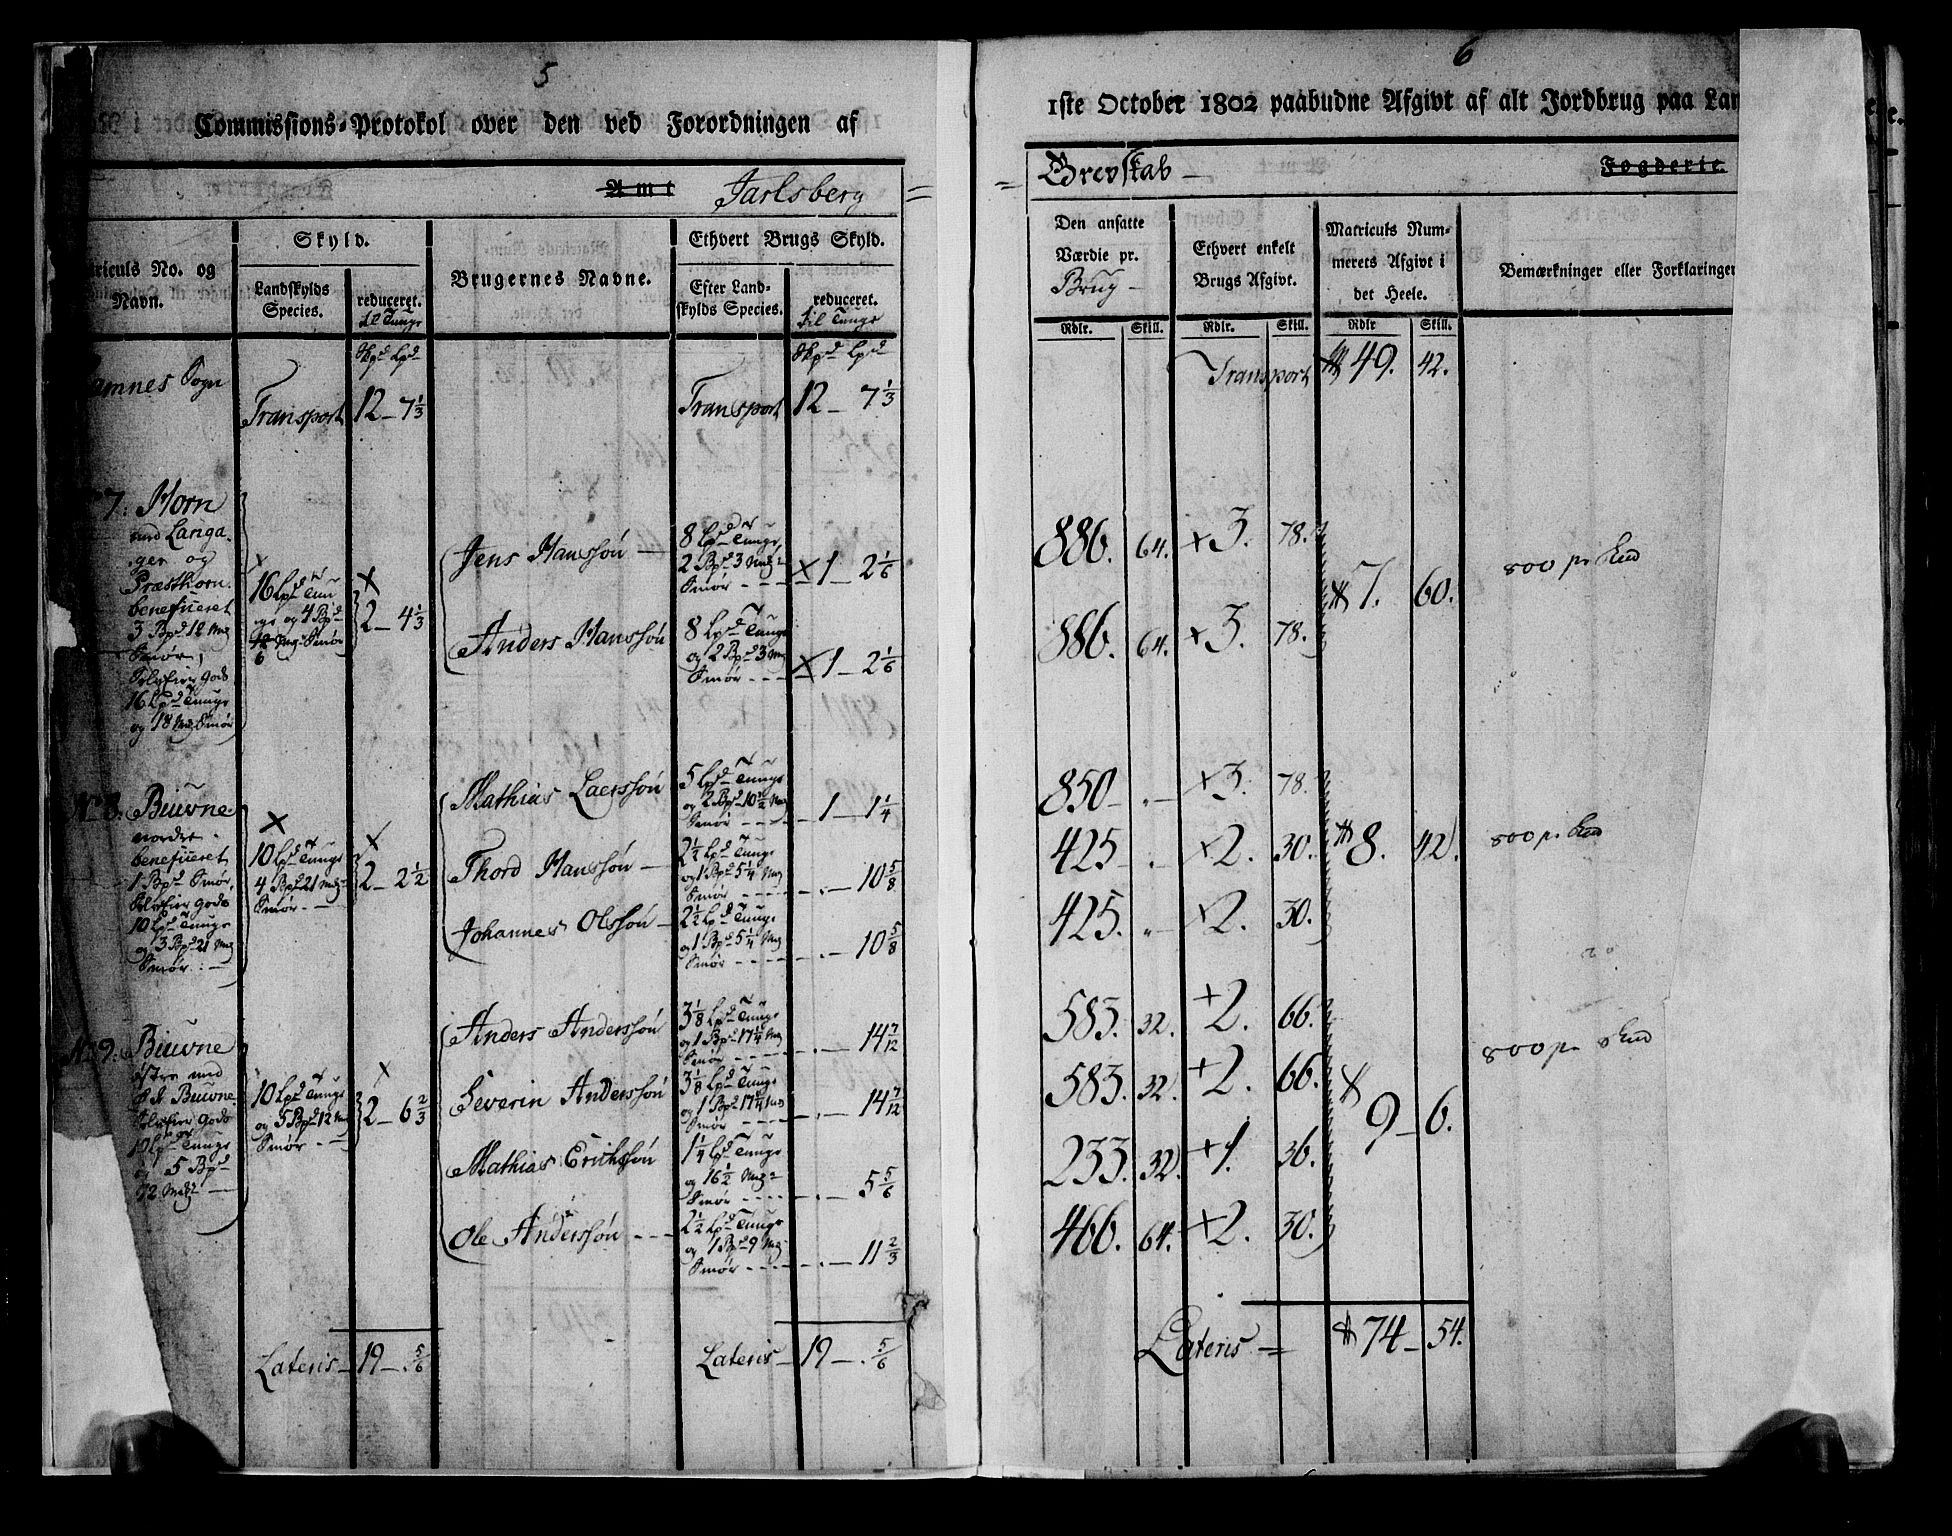 5
Commissions-Protokol over den ved Forordningen af
Amt Jarlsberg
Matriculs No. og
Navn.
Skyld.
Landskylds
Species.
reduceret.
til Tunge
Brugernes Navne.
Ethvert Brugs Skyld.
Efter Land-
skylds Species.
reduceret.
til Tunge
Skpd Lpd
Skpd Lpd
Ramnes Sogn
Transport 12 - 7 1/3
Transport 12 - 7 1/3
No 7. Horn
med Langa-
ger og
Præsthorn.
beneficeret
3 Bpd 12 Mrk
Smør,
Selveier Gods
16 Lpd Tunge
og 18 Mrk Smør
16 Lpd Tun
ge og 4 Bpd
6 Mrk Smør
2 - 4 1/3
Jens Hanssøn -
8 Lpd Tunge
2 Bpd 3 Mrk
Smør - - -
1 - 2 1/6
Anders Hanssøn
8 Lpd Tunge
og 2 Bpd 3 Mrk
Smør - - -
1 - 2 1/6
No 8. Biuvne
nordre -
beneficeret
1 Bpd Smør,
Selveier Gods
10 Lpd Tunge
og 3 Bpd 21 Mrk
Smør. -
10 Lpd Tunge
4 Bpd 21 Mrk
Smør - -
2 - 2 1/2
Mathias Laerssøn
5 Lpd Tunge
og 2 Bpd 10 1/2 Mrk
Smør - - -
1 - 1 1/4
Thord Hanssøn -
2 1/2 Lpd Tunge
og 1 Bpd 5 1/4 Mrk
Smør - - -
10 5/8
Johannes Olssøn -
2 1/2 Lpd Tunge
og 1 Bpd 5 1/4 Mrk
Smør - - -
10 5/8
No 9. Biuvne
østre med
Biuvne
Selveier Gods
10 Lpd Tunge
og 5 Bpd
12 Mrk
10 Lpd Tunge
og 5 Bpd 12 Mrk
Smør - -
2 - 6 2/3
Anders Anderssøn
3 1/8 Lpd Tunge
og 1 Bpd 17 1/4 Mrk
Smør - - -
14 7/12
Severin Anderssøn
3 1/8 Lpd Tunge
og 1 Bpd 17 1/4 Mrk
Smør - - -
14 7/12
Mathias Erichssøn
1 1/4 Lpd Tunge
og 16 1/2 Mrk
Smør - - -
5 5/6
Ole Anderssøn - - -
2 1/2 Lpd Tunge
og 1 Bpd 9 Mrk
Smør - - -
11 2/3
Lateris - 19 - . 5/6
Lateris - 19 - . 5/6
6
1ste October 1802 paabudne Afgivt af alt Jordbrug paa Lan
Grevskab -
Fogderie.
Den ansatte
Værdie pr.
Brug -
Ethvert enkelt
Brugs Afgivt.
Matriculs Num-
merets Afgivt i
det Heele.
Bemærkninger eller Forklaringer
Rdlr. Skill. Rdlr. Skill. Rdlr Skill.
Transport 49. 42.
886. 64. 3. 78.
7. 60. 800 pr
886. 64. 3. 78.
850 - . - 3. 78.
425 - . 2. 30. 8. 42. 800 pr
425. 2. 30.
583. 32. 2. 66.
800 pr
583. 32. 2. 66.
9 - 6.
233. 32. 1. 36.
466. 64. 2. 30.
Lateris = 74 - 54.